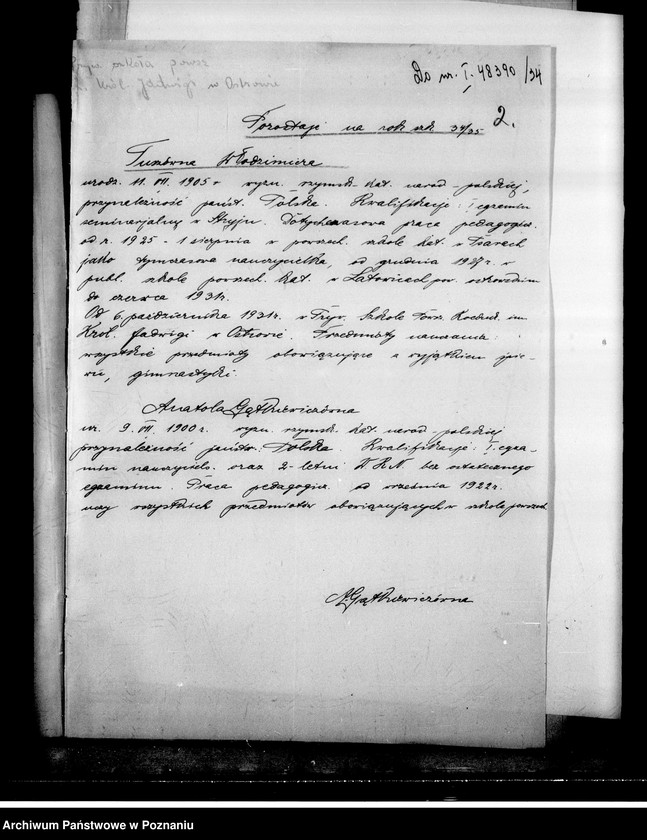 szkoła powsz
Król. Jadwigi w Ostrowie
Do nr. I. 48390/34
2.
Pozostają na rok szk 34/35
Tuzówna Włodzimiera
urodz. 11. VII. 1905 r wyzn. rzymsk-kat. narod-polskiej,
przynależność państ. Polska. Kwalifikacje: I egzamin
seminarjalny w Stryju. Dotychczasowa praca pedagogicz.
od r. 1925 - 1 sierpnia w powszech. szkole kat. w
jako tymczasowa nauczycielka, od grudnia 1927 r. w
publ. szkole powszech. kat. w Latowicach pow. ostrowskim
do czerwca 1931 r.
Od 6. października 1931 r. w Pryw. Szkole Powsz. im.
Król. Jadwigi w Ostrowie. Przedmioty nauczania:
wszystkie przedmioty obowiązujące z wyjątkiem śpie-
wu, gimnastyki.
Anatola Gątkiewiczówna
ur. 9. VII 1900 r. wyzn. rzymsk. kat. narod-polskiej
przynależność państw. Polska. Kwalifikacje: I. egza-
min nauczyciels. oraz 2-letni W.K.N. bez ostatecznego
egzaminu. Praca pedagogicz. od września 1922 r.
uczy wszystkich przedmiotów obowiązujących w szkole powszech.
A. Gątkiewiczówna
Archiwum Państwowe w Poznaniu